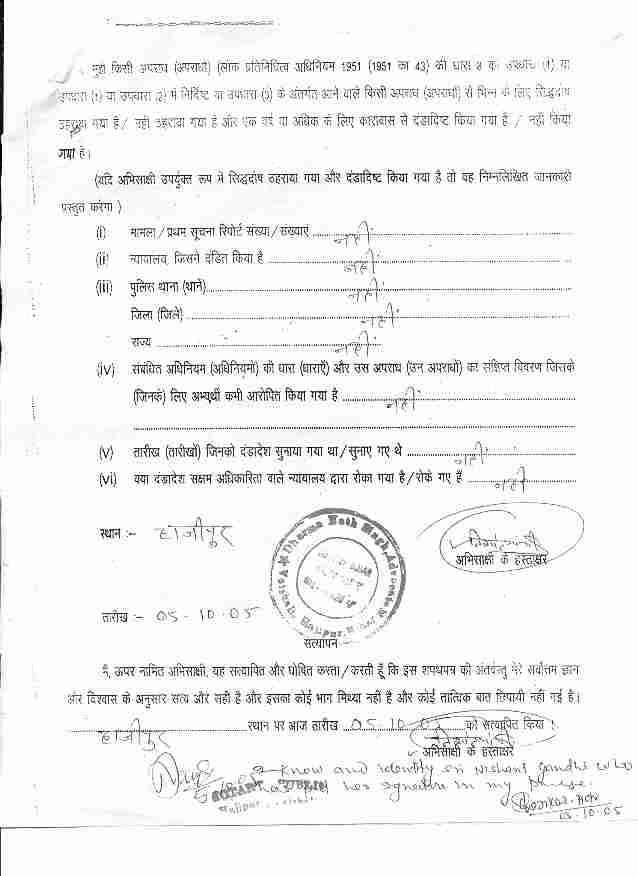 मुझे किसी अपराध (अपराधों) (लोक प्रतिनिधित्व अधिनियम 1951 (1951 का 43) की धारा 8 की उपधारा (1) या
उपधारा (1) या उपधारा (2) में निर्दिष्ट या उपधारा (3) के अंतर्गत आने वाले किसी अपराध (अपराधों) से भिन्न के लिए सिद्धदोष
ठहराया गया है / नहीं ठहराया गया है और एक वर्ष या अधिक के लिए कारावास से दंडादिष्ट किया गया है / नहीं किया
गया है।
(यदि अभिसाक्षी उपर्युक्त रूप में सिद्धदोष ठहराया गया और दंडादिष्ट किया गया है तो वह निम्नलिखित जानकारी
प्रस्तुत करेगा )
(i) मामला / प्रथम सूचना रिपोर्ट संख्या / संख्याएं नहीं
(ii) न्यायालय, किसने दंडित किया है नहीं
(iii) पुलिस थाना (थाने) नहीं
जिला (जिले) नहीं
राज्य नहीं
(iv) संबंधित अधिनियम (अधिनियमों) की धारा (धाराएँ) और उस अपराध (उन अपराधों) का संक्षिप्त विवरण जिसके
(जिनके) लिए अभ्यर्थी कभी आरोपित किया गया है नहीं
(v) तारीख (तारीखों) जिनको दंडादेश सुनाया गया था / सुनाए गए थे नहीं
(vi) क्या दंडादेश सक्षम अधिकारिता वाले न्यायालय द्वारा रोका गया है / रोके गए हैं नहीं
स्थान :- हाजीपुर
Dharma Nath Singh, Advocate
Vaishali, Hajipur, Bihar
अभिसाक्षी के हस्ताक्षर
तारीख :- 05-10-05
सत्यापन
मैं, ऊपर नामित अभिसाक्षी, यह सत्यापित और घोषित करता / करती हूँ कि इस शपथपत्र की अंतर्वस्तु मेरे सर्वोत्तम ज्ञान
और विश्वास के अनुसार सत्य और सही है और इसका कोई भाग मिथ्या नहीं है और कोई तात्विक बात छिपायी नहीं गई है।
हाजीपुर स्थान पर आज तारीख 05.10.05 को सत्यापित किया।
अभिसाक्षी के हस्ताक्षर
I know and identify Nishant Gandhi who
her signature in my
NOTARY PUBLIC
Hajipur
13-10-05